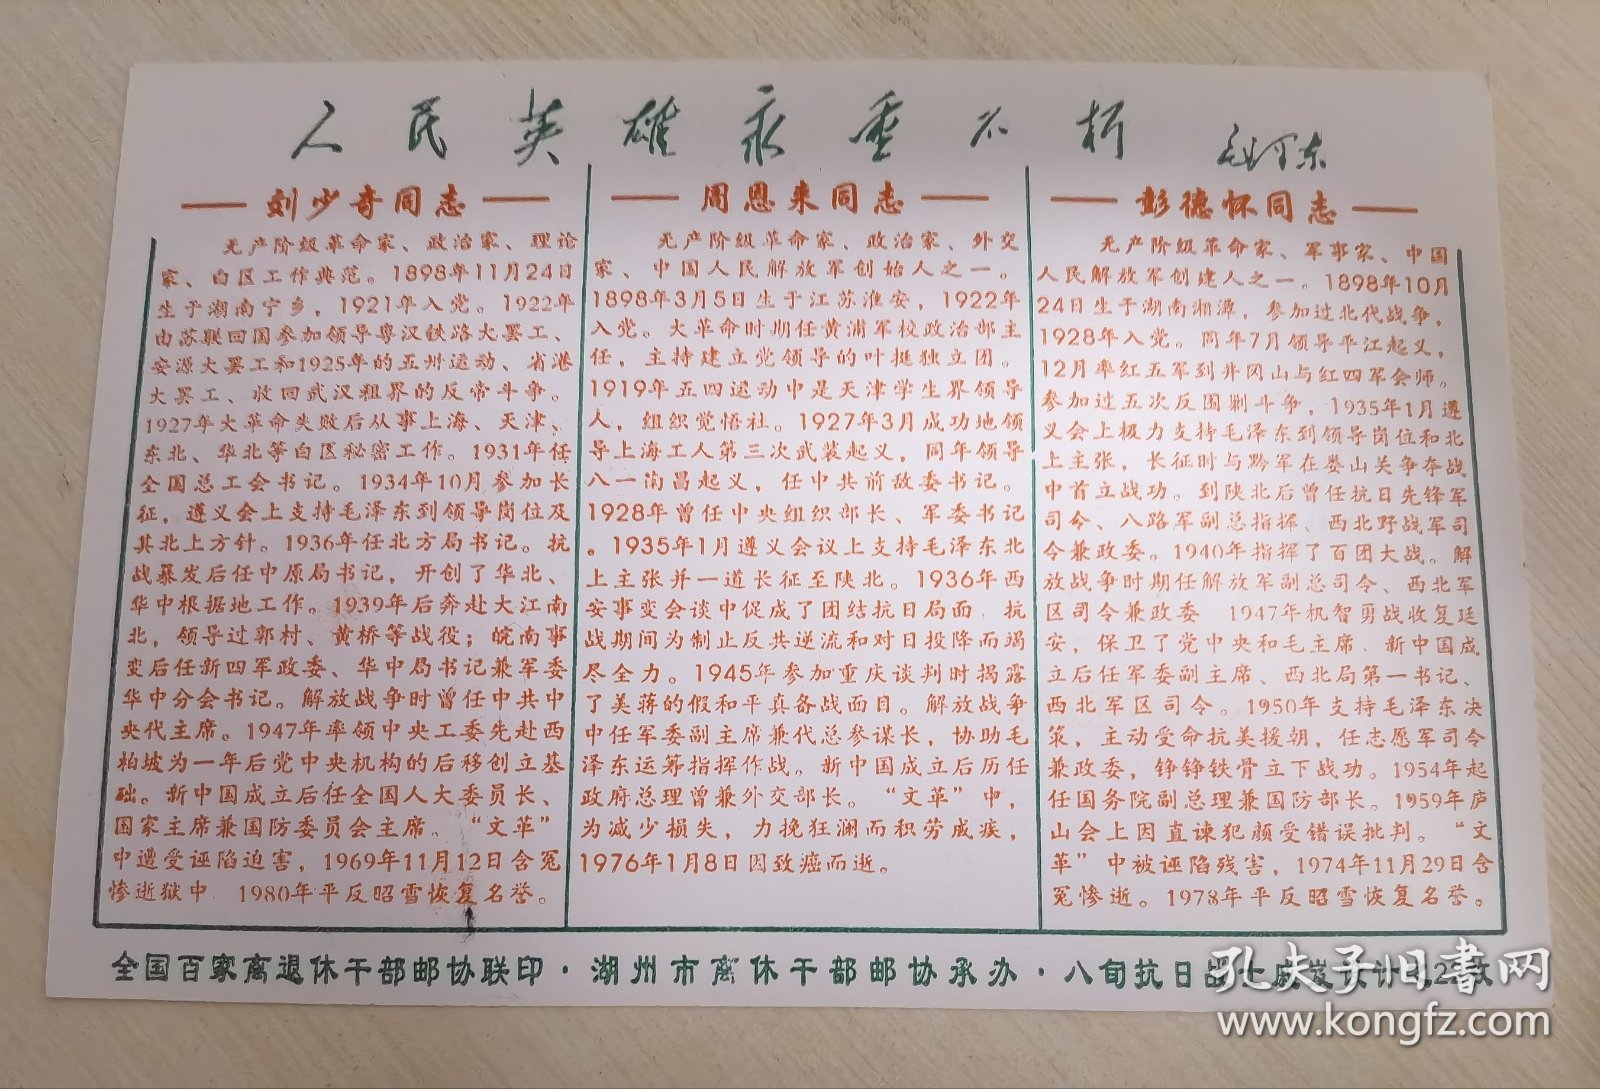 人民英雄永垂不朽 毛泽东
刘少奇同志
无产阶级革命家、政治家、理论
家、白区工作典范。1898年11月24日
生于湖南宁乡，1921年入党。1922年
由苏联回国参加领导粤汉铁路大罢工、
安源大罢工和1925年的五卅运动、省港
大罢工、收回武汉租界的反帝斗争。
1927年大革命失败后从事上海、天津、
东北、华北等白区秘密工作。1931年任
全国总工会书记。1934年10月参加长
征，遵义会上支持毛泽东到领导岗位及
其北上方针。1936年任北方局书记。抗
战暴发后任中原局书记，开创了华北、
华中根据地工作。1939年后奔赴大江南
北，领导过郭村、黄桥等战役；皖南事
变后任新四军政委、华中局书记兼军委
华中分会书记。解放战争时曾任中共中
央代主席。1947年率领中央工委先赴西
柏坡为一年后党中央机构的后移创立基
础。新中国成立后任全国人大委员长、
国家主席兼国防委员会主席。“文革”
中遭受诬陷迫害，1969年11月12日含冤
惨逝狱中 1980年平反昭雪恢复名誉。
周恩来同志
无产阶级革命家、政治家、外交
家、中国人民解放军创始人之一。
1898年3月5日生于江苏淮安，1922年
入党。大革命时期任黄浦军校政治部主
任，主持建立党领导的叶挺独立团。
1919年五四运动中是天津学生界领导
人，组织觉悟社。1927年3月成功地领
导上海工人第三次武装起义，同年领导
八一南昌起义，任中共前敌委书记。
1928年曾任中央组织部长、军委书记
。1935年1月遵义会议上支持毛泽东北
上主张并一道长征至陕北。1936年西
安事变会谈中促成了团结抗日局面 抗
战期间为制止反共逆流和对日投降而竭
尽全力。1945年参加重庆谈判时揭露
了美蒋的假和平真备战面目。解放战争
中任军委副主席兼代总参谋长，协助毛
泽东运筹指挥作战。新中国成立后历任
政府总理曾兼外交部长。“文革”中，
为减少损失，力挽狂澜而积劳成疾，
1976年1月8日因致癌而逝。
彭德怀同志
无产阶级革命家、军事家、中国
人民解放军创建人之一。1898年10月
24日生于湖南湘潭，参加过北伐战争，
1928年入党。同年7月领导平江起义，
12月率红五军到井冈山与红四军会师。
参加过五次反围剿斗争，1935年1月遵
义会上极力支持毛泽东到领导岗位和北
上主张，长征时与黔军在娄山关争夺战
中首立战功。到陕北后曾任抗日先锋军
司令、八路军副总指挥、西北野战军司
令兼政委。1940年指挥了百团大战。解
放战争时期任解放军副总司令、西北军
区司令兼政委 1947年机智勇战收复延
安，保卫了党中央和毛主席 新中国成
立后任军委副主席、西北局第一书记、
西北军区司令。1950年支持毛泽东决
策，主动受命抗美援朝，任志愿军司令
兼政委，铮铮铁骨立下战功。1954年起
任国务院副总理兼国防部长。1959年庐
山会上因直谏犯颜受错误批判。“文
革”中被诬陷残害，1974年11月29日含
冤惨逝。1978年平反昭雪恢复名誉。
全国百家离退休干部邮协联印·湖州市离休干部邮协承办·八旬抗日战士
孔夫子旧书网
www.kongfz.com